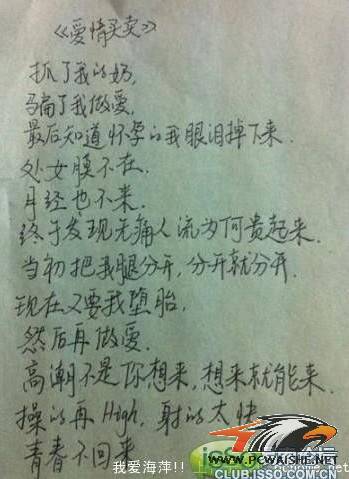 《爱情买卖》
抓了我的奶,
骗了我做爱,
最后知道怀孕的我眼泪掉下来.
处女膜不在.
月经也不来.
终于发现无痛人流为何贵起来.
当初把我腿分开,分开就分开.
现在又要我堕胎,
然后再做爱.
高潮不是你想来,想来就能来.
操的再High,射的太快
青春不回来
我爱海萍!!
WWW.PCWAISHE.NET
CLUB.ISSO.COM.CN